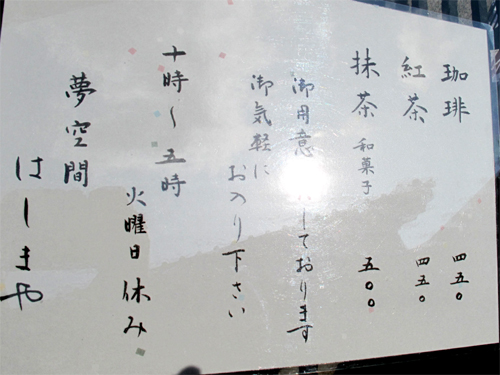 珈琲 四五〇
紅茶 四五〇
抹茶 和菓子 五〇〇
御用意 しております
御気軽に
お入り下さい
十時〜五時
火曜日休み
夢空間
はしまや